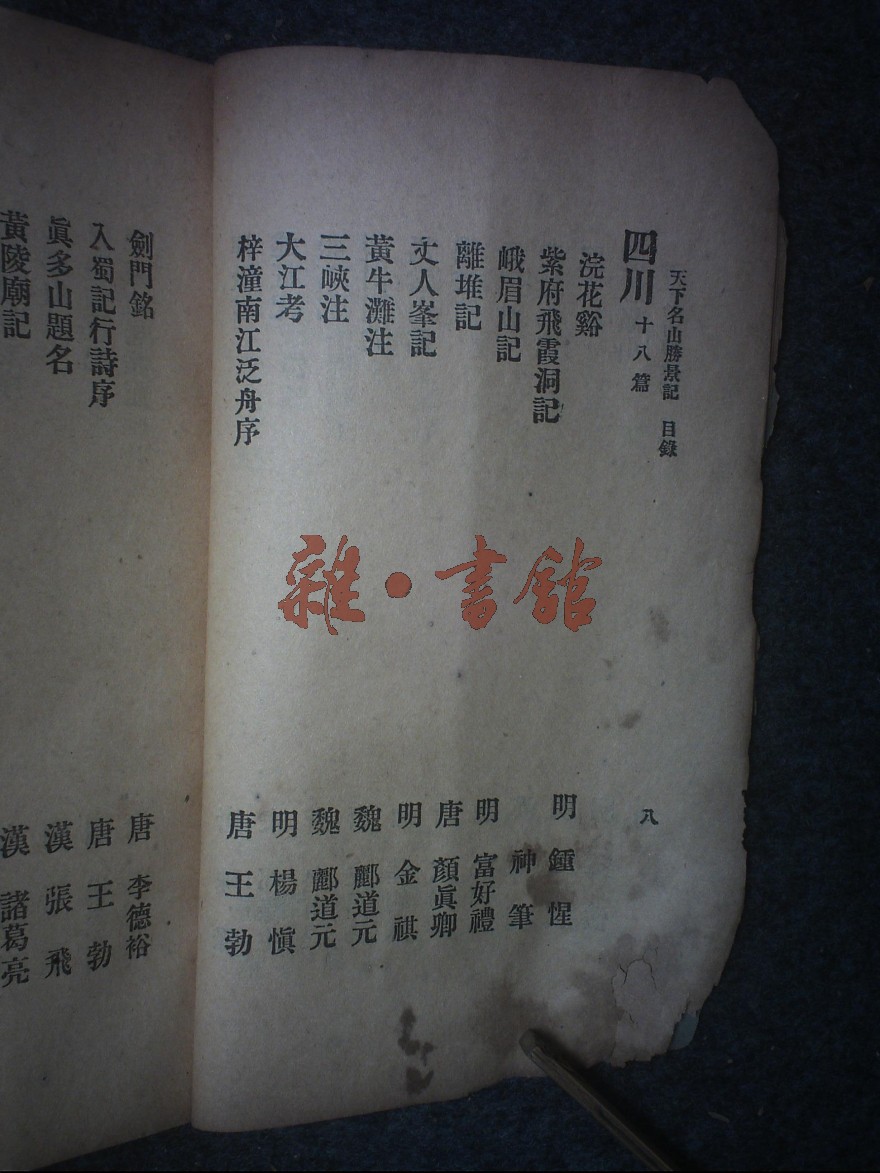 天下名山勝景記 目錄 八
四川 十八篇
浣花谿 明 鍾惺
紫府飛霞洞記 神筆
峨眉山記 明 富好禮
離堆記 唐 顏眞卿
丈人峯記 明 金祺
黃牛灘注 魏 酈道元
三峽注 魏 酈道元
大江考 明 楊愼
梓潼南江泛舟序 唐 王勃
劍門銘 唐 李德裕
入蜀記行詩序 唐 王勃
眞多山題名 漢 張飛
黃陵廟記 漢 諸葛亮
雜·書館